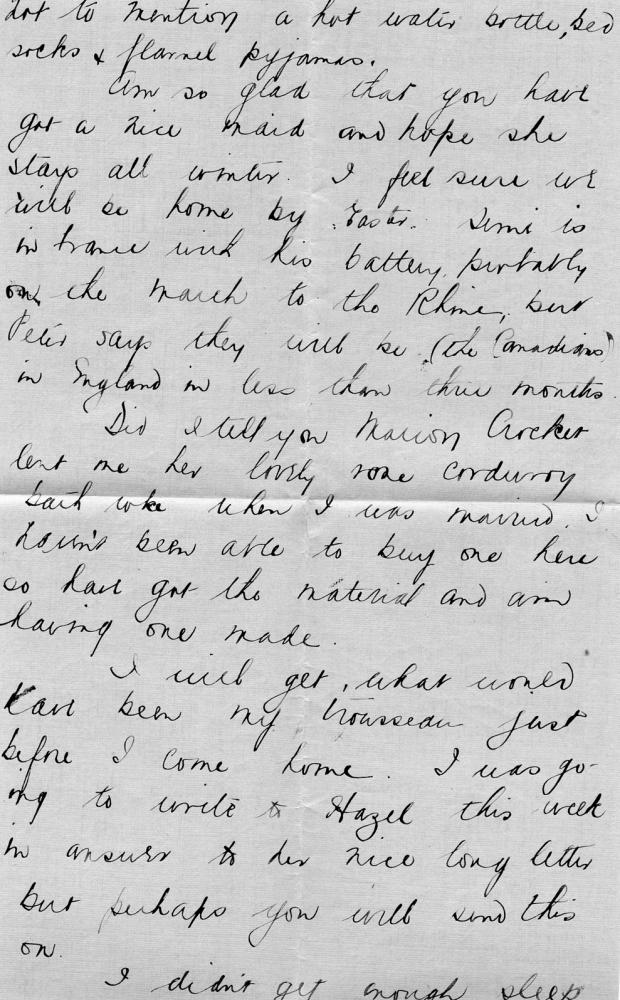 not to mention a hot water bottle, bed
socks & flannel pyjamas.
Am so glad that you have
got a nice maid and hope she
stays all winter. I feel sure we
will be home by Easter. is
in France with his battery, probably
on the march to the Rhine, but
Peter says they will be (the Canadians)
in England in less than three months.
Did I tell you Marion Crocket
lent me her lovely rose corduroy
bath robe when I was married. I
haven't been able to buy one here
so have got the material and am
having one made.
I will get, what would
have been my trousseau just
before I come home. I was go-
ing to write to Hazel this week
in answer to her nice long letter
but perhaps you will send this
on.
I didn't get enough sleep